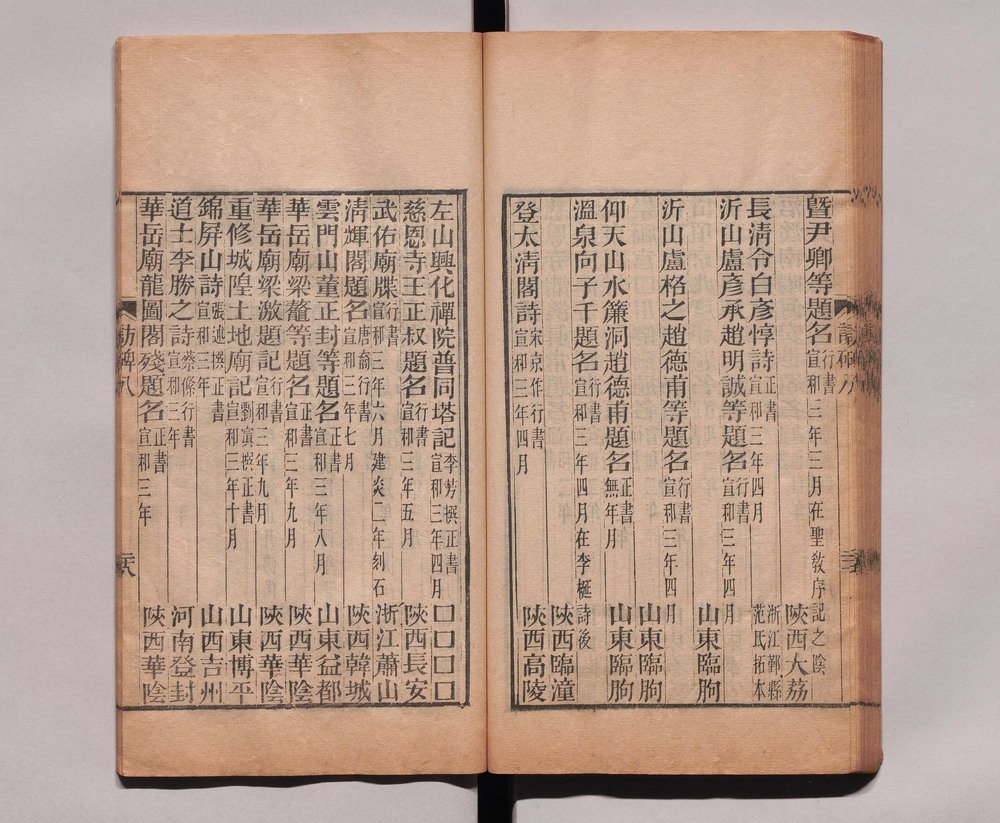 暨尹卿等題名行書宣和三年三月在聖敎序記之陰
陝西大荔
長淸令白彥惇詩正書宣和三年四月
浙江鄞縣范氏拓本
沂山盧彥承趙明誠等題名行書宣和三年四月
山東臨朐
沂山盧格之趙德甫等題名行書宣和三年四月
山東臨朐
仰天山水簾洞趙德甫題名正書無年月
山東臨朐
溫泉向子千題名行書宣和三年四月在李梴詩後
陝西臨潼
登太淸閣詩宋京作行書宣和三年四月
陝西高陵
左山興化禪院普同塔記李芳撰正書宣和三年四月
□□□□
慈恩寺王正叔題名行書宣和三年五月
陝西長安
武佑廟牒行書宣和三年六月建炎二年刻石
浙江蕭山
淸輝閣題名唐裔行書宣和三年七月
陝西韓城
雲門山董正封等題名正書宣和三年八月
山東益都
華岳廟梁䥐等題名正書宣和三年九月
陝西華陰
華岳廟梁激題記行書宣和三年九月
陝西華陰
重修城隍土地廟記劉寘撰正書宣和三年十月
山東博平
錦屏山詩張述撰正書宣和三年
山西吉州
道士李勝之詩蔡絛行書宣和三年
河南登封
華岳廟龍圖閣殘題名正書宣和三年
陝西華陰
訪碑八